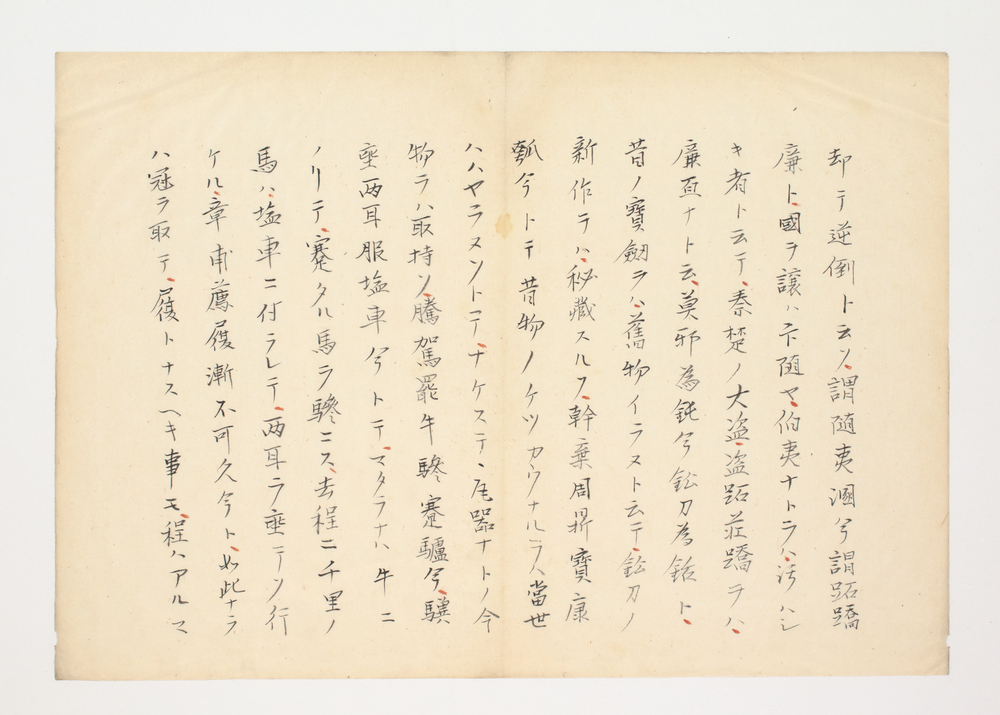 却テ逆倒ト云ソ、謂随夷溷兮謂跖蹻
廉ト、國ヲ譲ハ卞随ヤ、伯夷ナトヲハ、汚ハシ
キ者ト云テ、秦楚ノ大盗、盗跖荘蹻ヲハ、
廉直ナト云、莫邪為鈍兮鈆刀為銛ト、
昔ノ寶劔ヲハ、舊物イラヌト云テ、鈆刀ノ
新作ヲハ、秘蔵スルヌ、幹棄周鼎寶康
瓠今トテ昔物ノケツカウナルヲハ當世
ハハヤラヌソトテ、ナケステ、瓦器ナトノ今
物ヲハ取持ソ、騰駕罷牛驂蹇驢兮、驥
垂两耳服塩車兮トテ、マタラナハ牛ニ
ノリテ、蹇タル馬ヲ驂ニス、去程ニ千里ノ
馬ハ、塩車ニ付ラレテ、两耳ヲ垂テソ行
ケル、章甫薦屨漸不可久兮ト、如此ナラ
ハ冠ヲ取テ、屨トナスヘキ事モ、程ハアルマ